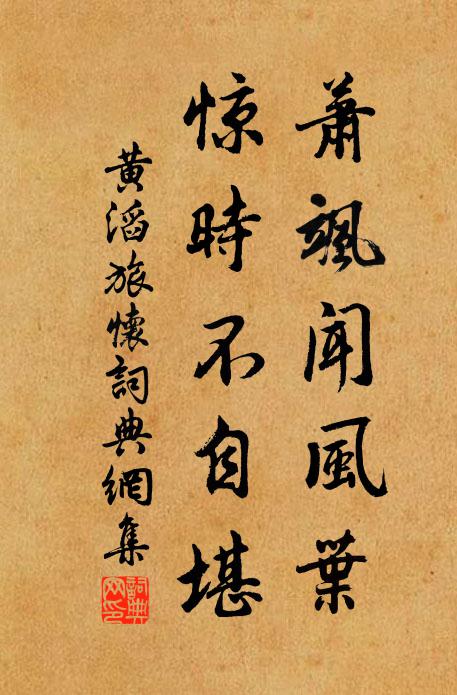 蕭颯聞風葉
惊時不自堪
黄滔旅懷詞典網集
詞典
網印